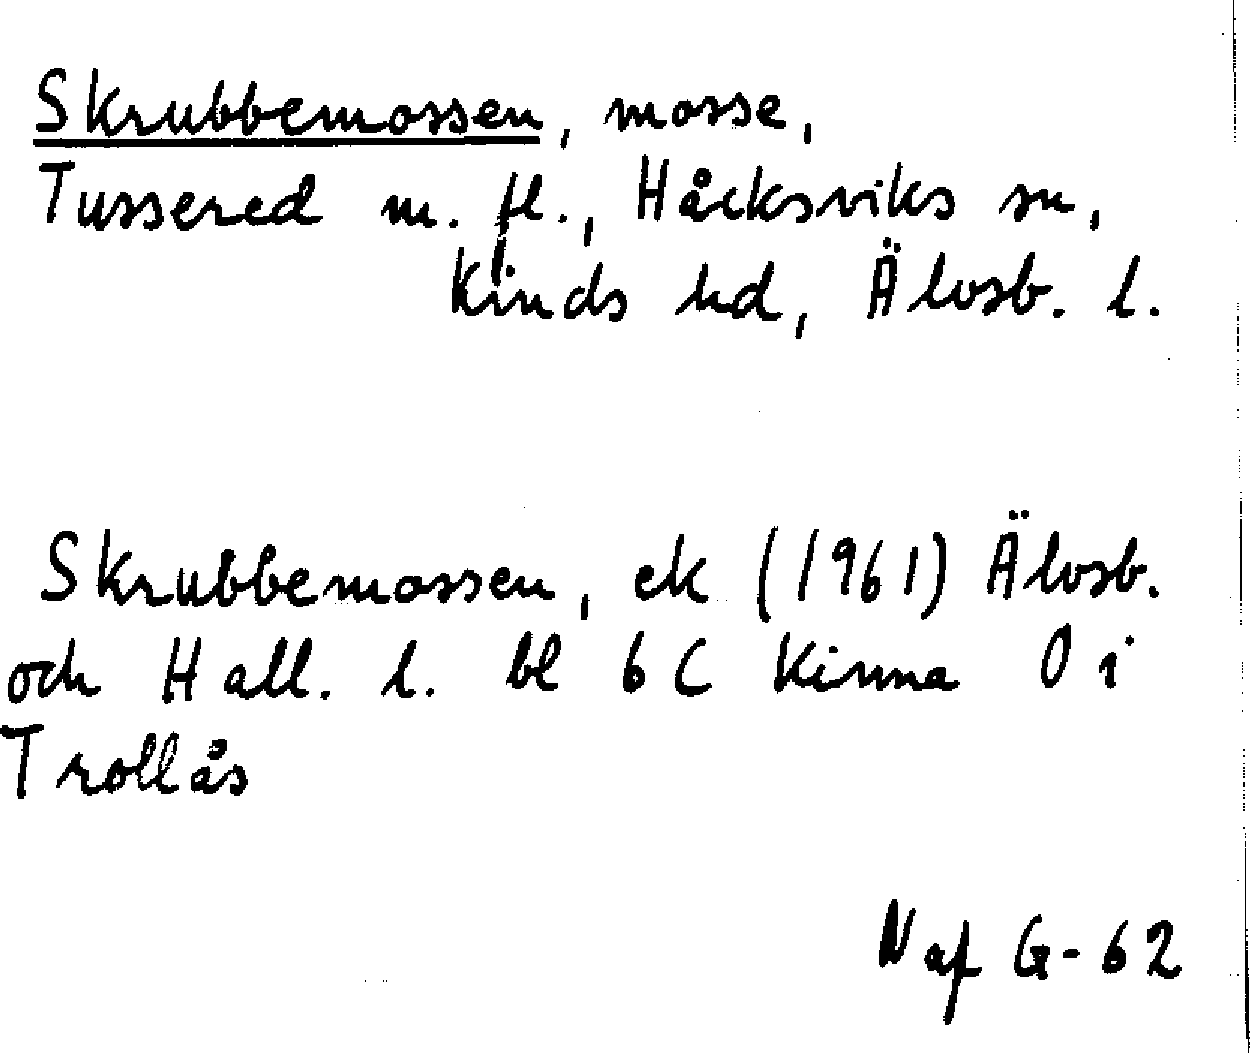 Skrubbemossen, mosse,
Tussered m. fl., Håcksviks sn,
Kinds hd, Älvsb. l.
Skrubbemossen, ek (1961) Älvsb.
och Hall. l. bl 6 C Kinna O i
Trollås
N af G-62